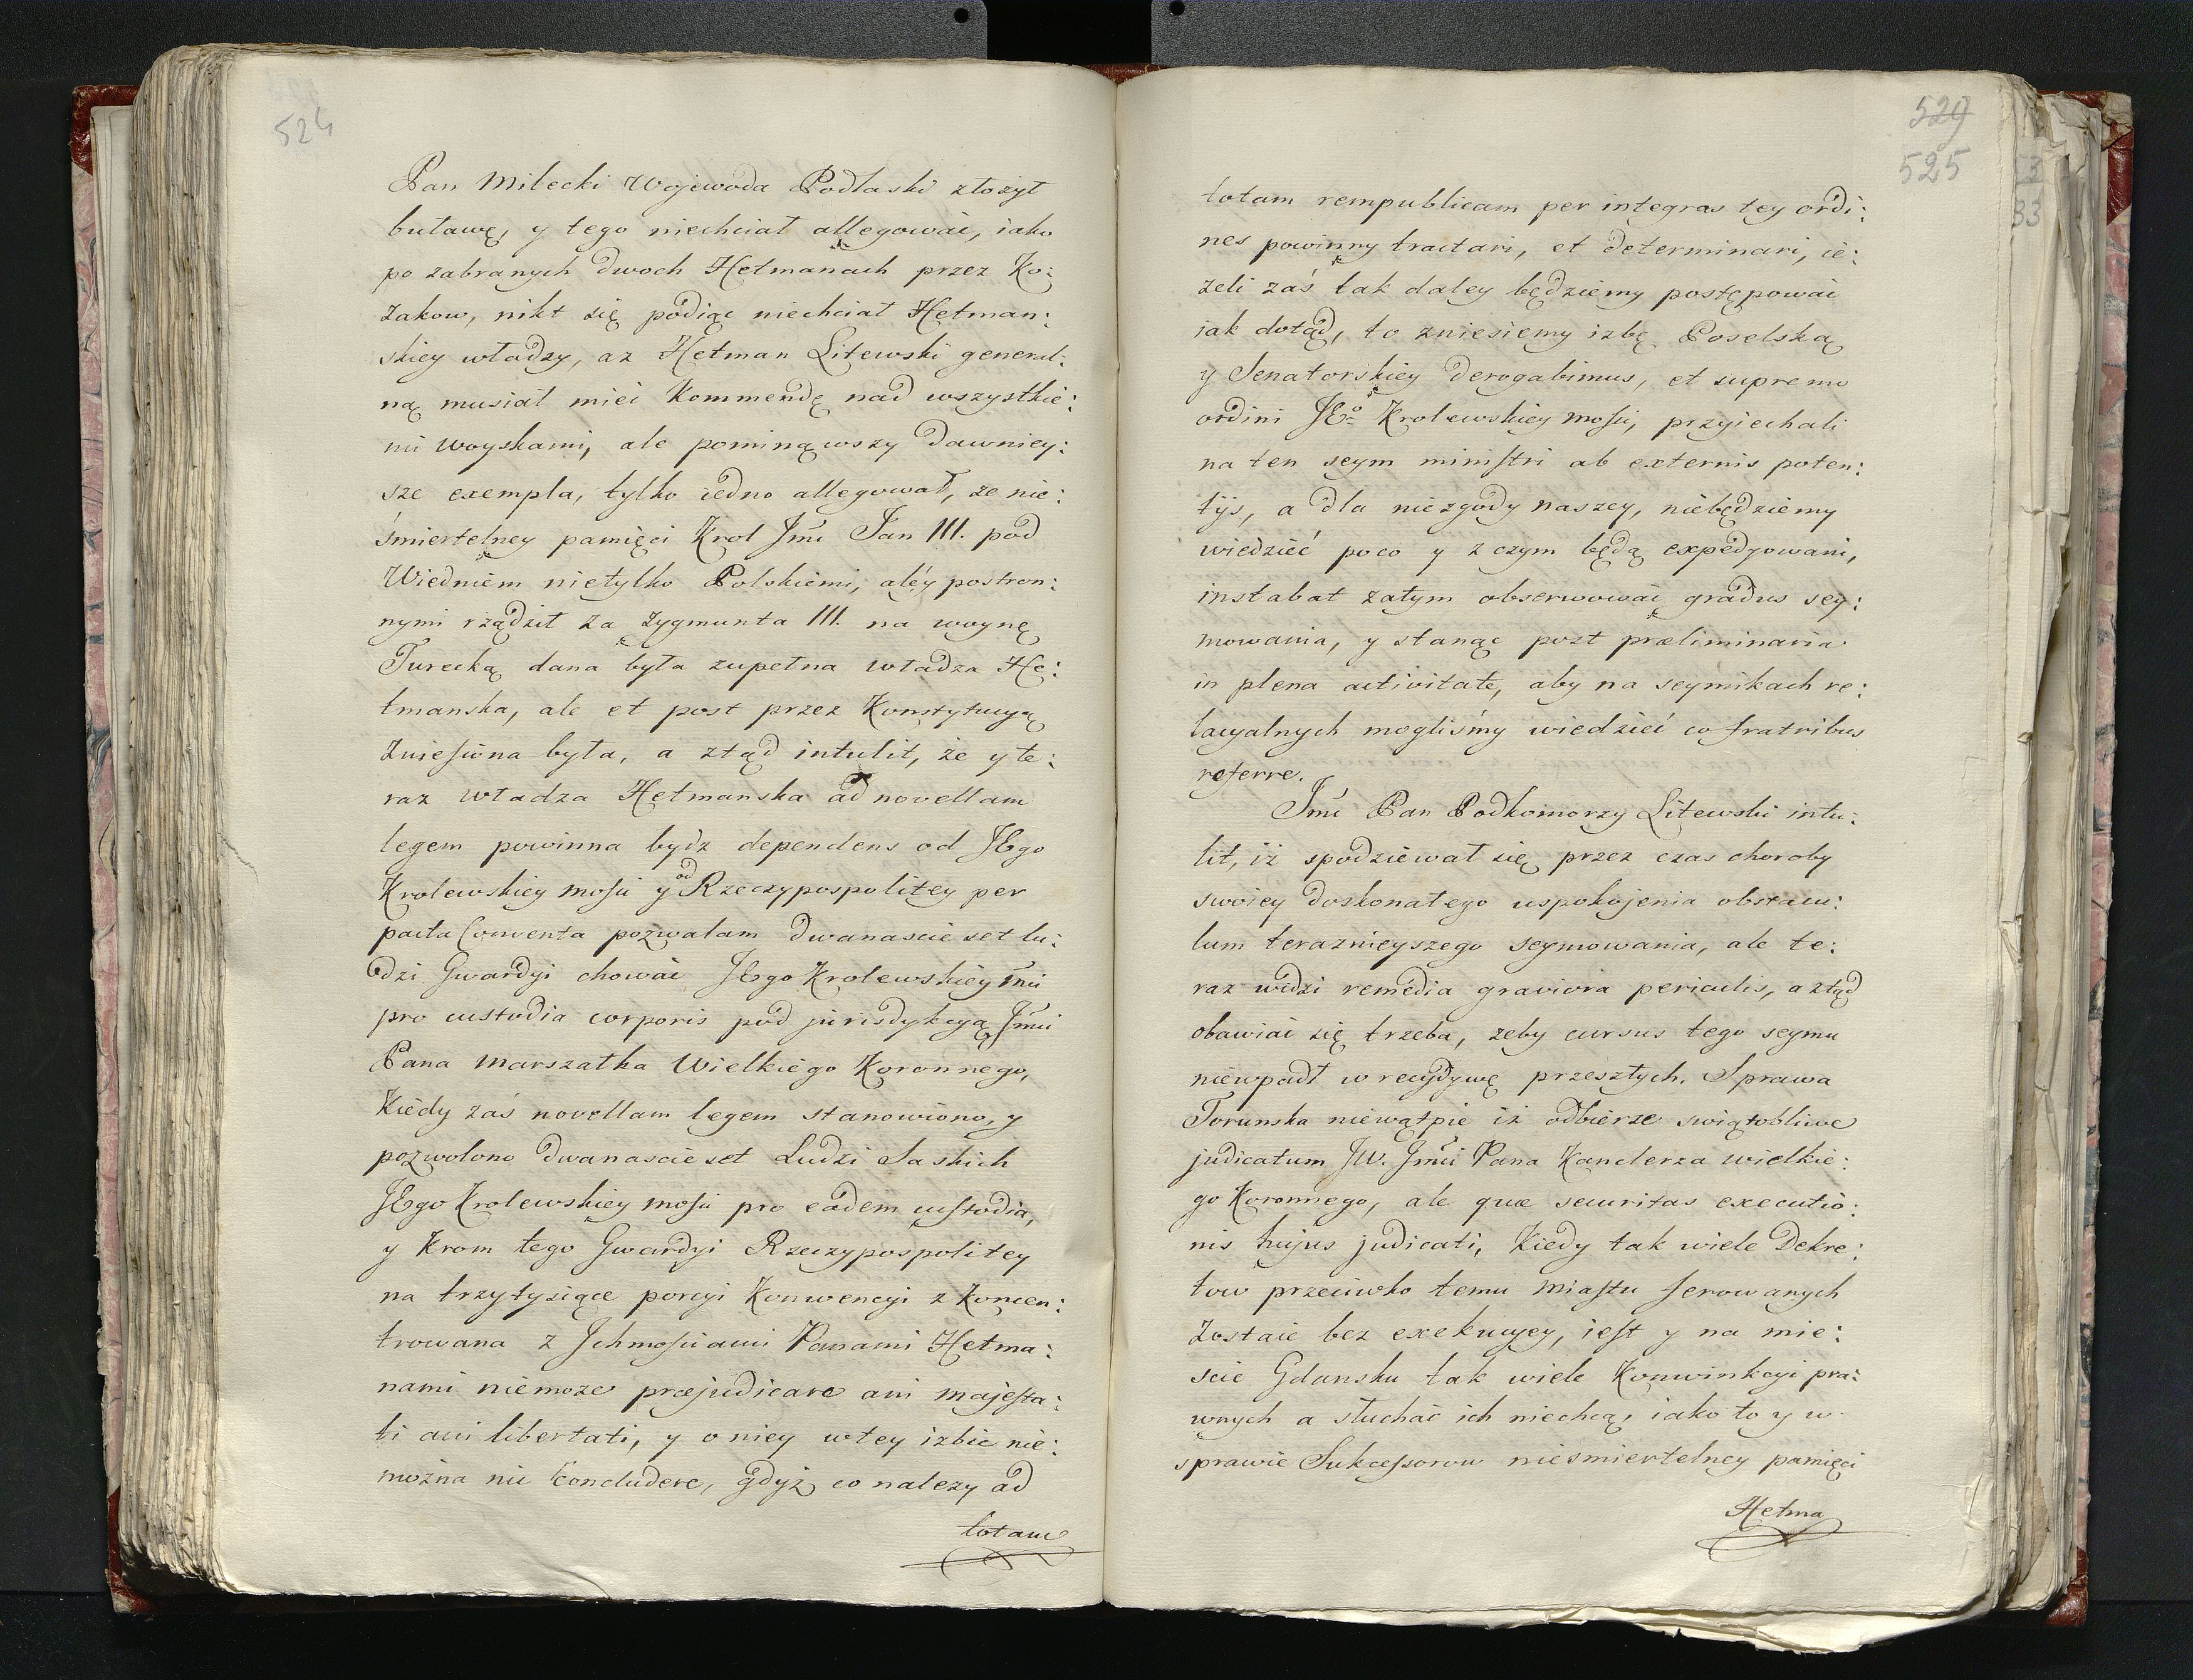 524
Pan Milecki Wojewoda Podlaski złożył
buławę, y tego niechciał allegować, iako
po zabranych dwoch Hetmanach przez Ko:
zakow, nikt się podiąc niechciał Hetman:
skiey władzy, az Hetman Litewski general:
ną musiał mieć Kommendę nad wszystkie:
mi woyskami, ale pominąwszy dawniey:
sze exempla, tylko iedno allegował, ze nie:
śmiertelney pamięci Krol Jmć Jan III. pod
Wiedniem nietylko Polskiemi, ale y postron:
nymi rządził za Zygmunta III. na woynę
Turecką dana była zupełna władza He:
tmanska, ale et post przez Konstytucyą
Zniesiona była, a ztąd intulit, że y te:
raz władza Hetmanska ad novellam
legem powinna bydz dependens od JEgo
Krolewskiey mości y od Rzeczypospolitey per
pacta Conventa pozwalam dwanascie set lu:
dzi Gwardyi chować JEgo Krolewskiey mci
pro custodia corporis pod jurisdykcyą Jmci
Pana Marszałka Wielkiego Koronnego,
Kiedy zaś novellam legem stanowiono, y
pozwolono dwanascie set Ludzi Saskich
JEgo Krolewskiey mości pro eadem custodia,
y Krom tego Gwardyi Rzeczypospolitey
na trzy tysiące porcyi Konwencyi z Koncen:
trowana z Jchmościami Panami Hetma:
nami niemoze præjudicare ani majesta:
ti ani libertati, y o niey w tey izbie nie:
można nic Concludere, gdyż co nalezy ad
totam
529
525
totam rempublicam per integras tey ordi:
nes powinny tractari, et determinari, ie:
żeli zaś tak daley będziemy postępować
iak dotąd, to zniesiemy izbę Poselską
y Senatorskiey derogabimus, et supremo
ordini JEo Krolewskiey mości, przyiechali
na ten seym ministri ab externis poten:
tijs, a dla niezgody naszey, niebędziemy
wiedzieć poco y z czym będą expedyowani,
instabat zatym obserwować gradus sey:
mowania, y stanąc post præliminaria
in plena activitate, aby na seymikach re:
lacyalnych mogliśmy wiedzieć co fratribus
referre.
Jmć Pan Podkomorzy Litewski intu:
lit, iż spodziewał się przez czas choroby
swoiey doskonałego uspokojenia obstacu:
lum teraznieyszego seymowania, ale te:
raz widzi remedia graviora periculis, a ztąd
obawiać się trzeba, zeby cursus tego seymu
niewpadł w recydywę przeszłych. Sprawa
Torunska niewątpie iż odbierze swiątobliwe
judicatum JW. Jmci Pana Kanclerza wielkie:
go Koronnego, ale quæ securitas executio:
nis hujus judicati, Kiedy tak wiele Dekre:
tow przeciwko temu miastu ferowanych
Zostaie bez exekucyey, iest y na mie:
scie Gdansku tak wiele Konwinkcyi pra:
wnych a słuchać ich niechcą, iako to y w
sprawie Sukcessorow niesmiertelney pamięci
Hetma